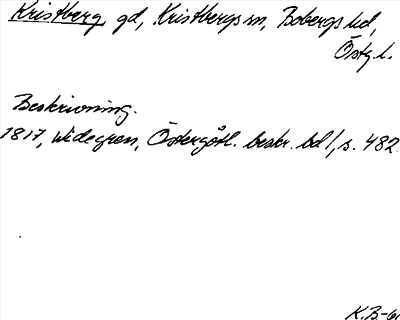 Kristberg, gd, Kristbergs sn, Bobergs hd,
Östg. l.
Beskrivning.
1817, Widegren, Östergötl. beskr. bd 1, s. 482.
K.B-61